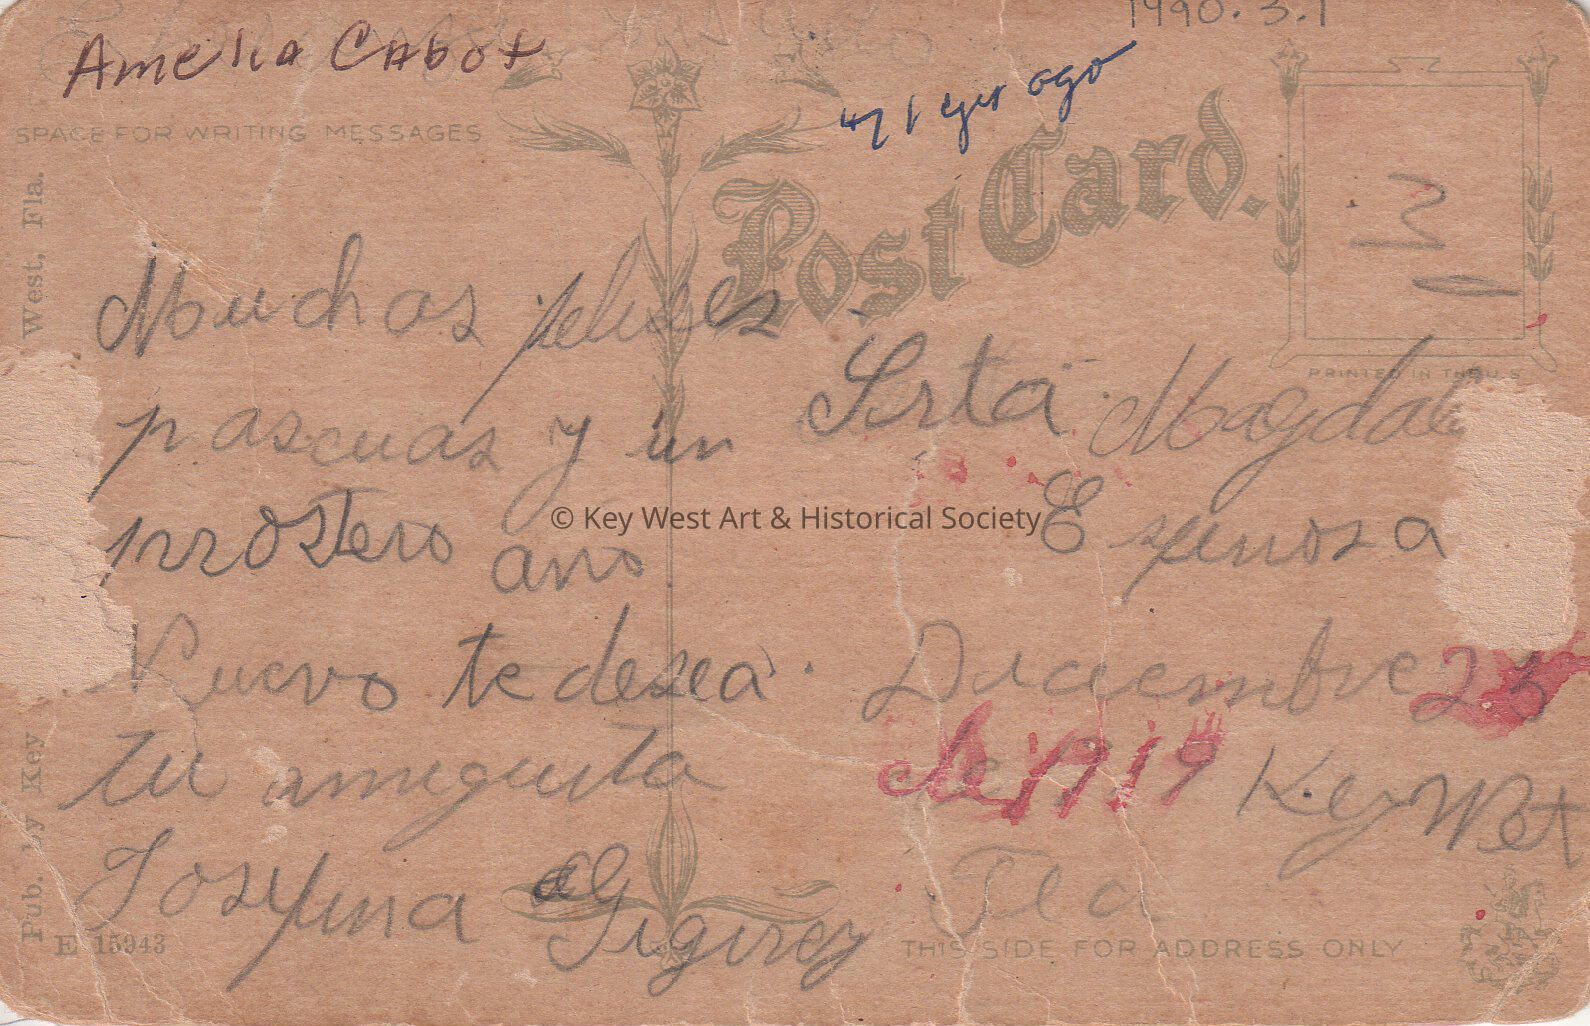 1990.3.1
Amelia Cabot
71 yer ago
SPACE FOR WRITING MESSAGES
Post Card.
PRINTED IN THE U.S
Muchas felises
pascuas y un
prrostero ano
Nuevo te desea
tu amiguita
Josefina
Srta Magdal
Espinosa
Diciembre 23
de 1919 Key West
Fla
© Key West Art & Historical Society
Pub. by Key West, Fla.
E 15943
THIS SIDE FOR ADDRESS ONLY